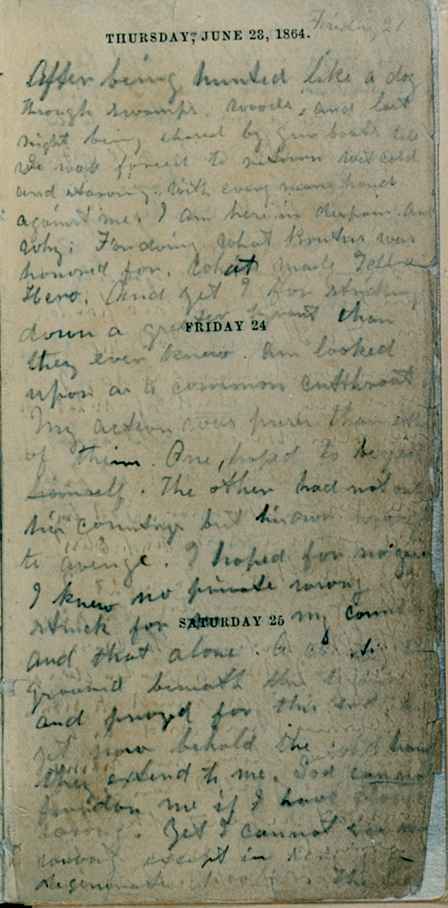 Friday 21
THURSDAY, JUNE 23, 1864.
After being hunted like a dog
through swamps, woods, and last
night being chased by gun boats till
I was forced to return wet cold
and starving, with every mans hand
against me, I am here in despair. And
why; For doing what Brutus was
honored for, what made Tell a
Hero. And yet I for striking
down a greater tyrant than
FRIDAY 24
they ever knew am looked
upon as a common cutthroat.
My action was purer than either
of them. One, hoped to be great
himself. The other had not only
his countrys but his own wrongs
to avenge. I hoped for no gain
I knew no private wrong. I
struck for my country
SATURDAY 25
and that alone. A
ground beneath this
and prayed for this end,
yet now behold the cold hand
they extend to me. God cannot
pardon me if I have done
wrong. Yet I cannot see any
wrong except in serving a
degenerate people. The